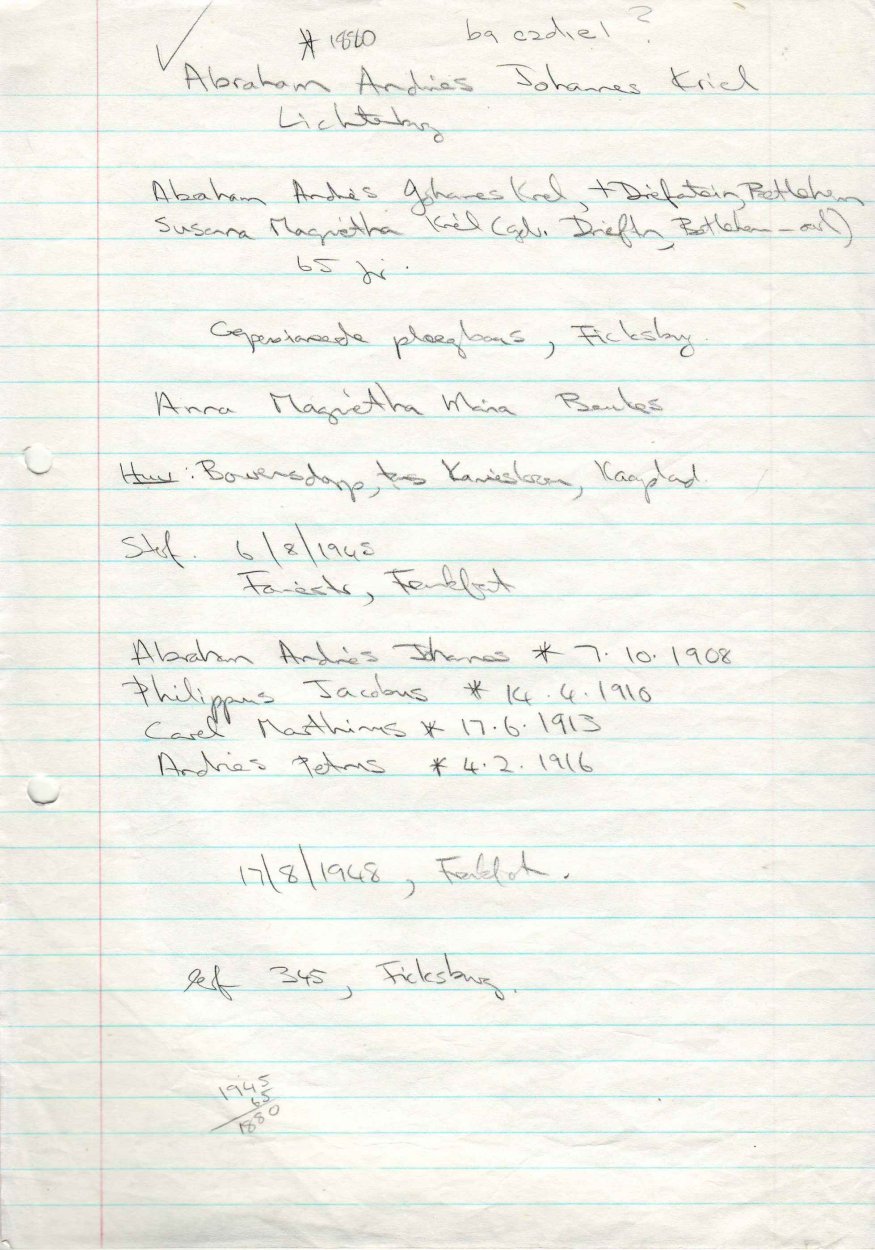 * 1880 b9 c2d1e1 ?
Abraham Andries Johannes Kriel
Lichtenburg
Abraham Andries Johannes Kriel, + Driefontein, Bethlehem
Susanna Magrietha Kriel (geb. Drieftn, Bethlehem - oorl)
65 jr.
Gepensioneerde ploegbaas, Ficksburg.
Anna Magrietha Maria Beukes
Huw: Bowersdorp, Kamieskroon, Kaapland
Sterf. 6/8/1945
Frankfort
Abraham Andries Johannes * 7.10.1908
Philippus Jacobus * 14.4.1910
Carel Matthinus * 17.6.1913
Andries Petrus * 4.2.1916
17/8/1948, Frankfort.
erf 345, Ficksburg.
1945
65
1880